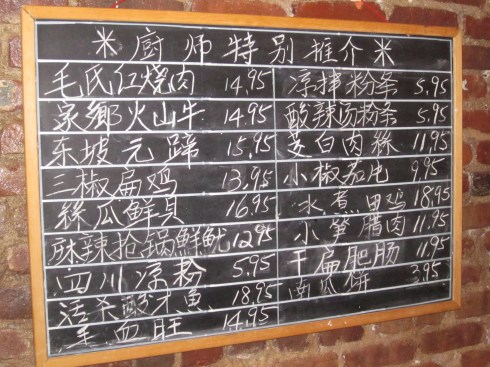 ※厨师特别推介※
毛氏红烧肉 14.95
家鄉火山牛 14.95
东坡元蹄 15.95
三椒扁鸡 13.95
絲瓜鮮貝 16.95
麻辣抢锅鮮魷 12.95
四川凉粉 5.95
活杀酸才鱼 18.95
毛血旺 14.95
凉拌粉条 5.95
酸辣汤粉条 5.95
茭白肉絲 11.95
小椒茄 9.95
水煮田鸡 18.95
小笋腊肉 11.95
干扁肥肠 11.95
南瓜饼 3.95